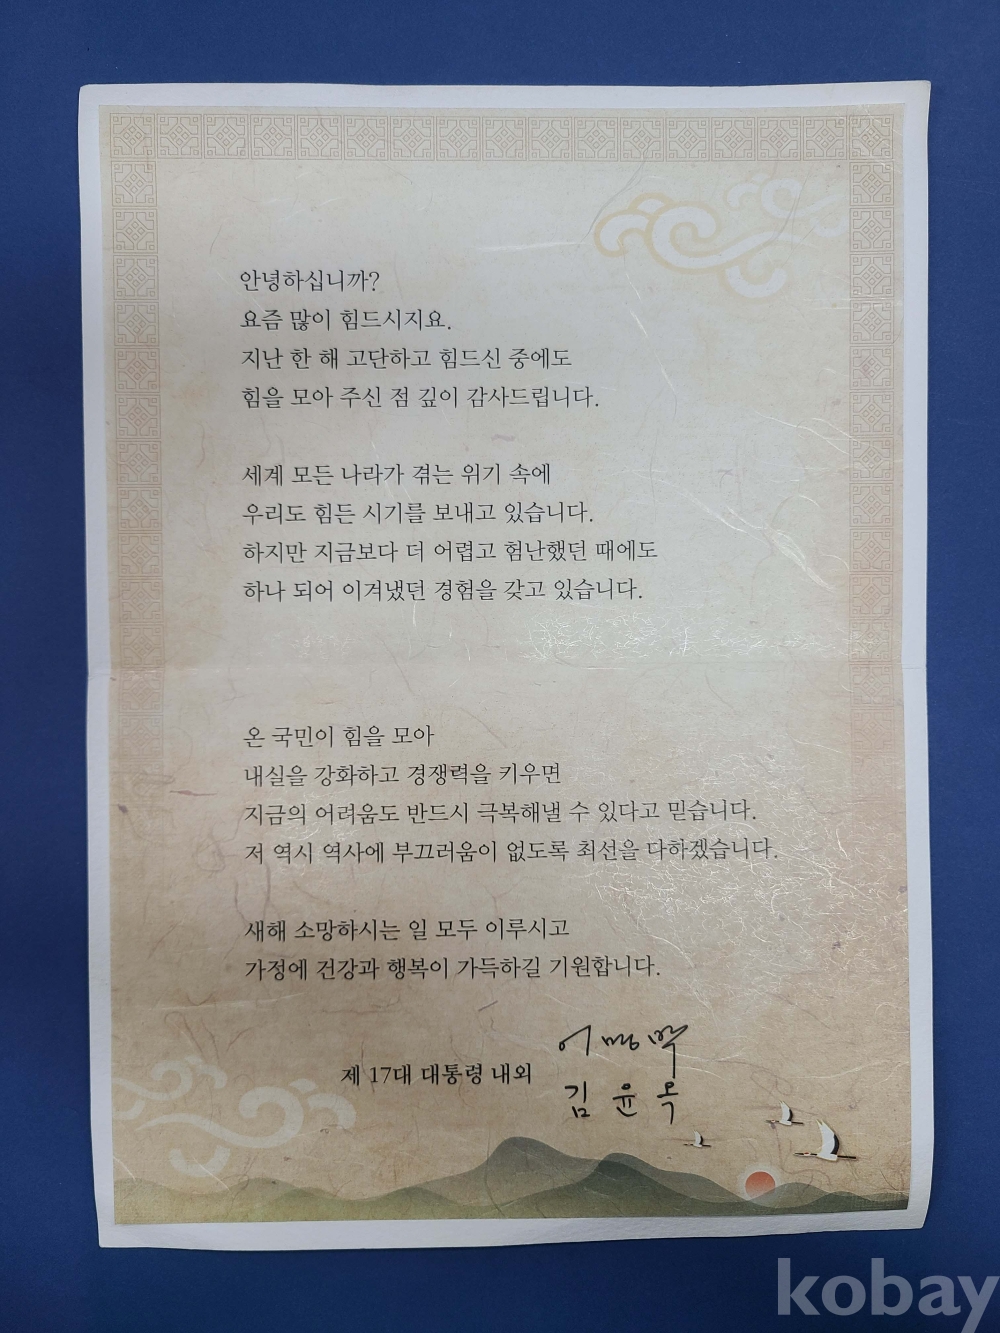 안녕하십니까?
요즘 많이 힘드시지요.
지난 한 해 고단하고 힘드신 중에도
힘을 모아 주신 점 깊이 감사드립니다.
세계 모든 나라가 겪는 위기 속에
우리도 힘든 시기를 보내고 있습니다.
하지만 지금보다 더 어렵고 험난했던 때에도
하나 되어 이겨냈던 경험을 갖고 있습니다.
온 국민이 힘을 모아
내실을 강화하고 경쟁력을 키우면
지금의 어려움도 반드시 극복해낼 수 있다고 믿습니다.
저 역시 역사에 부끄러움이 없도록 최선을 다하겠습니다.
새해 소망하시는 일 모두 이루시고
가정에 건강과 행복이 가득하길 기원합니다.
이명박
제 17대 대통령 내외
김윤옥
kobay